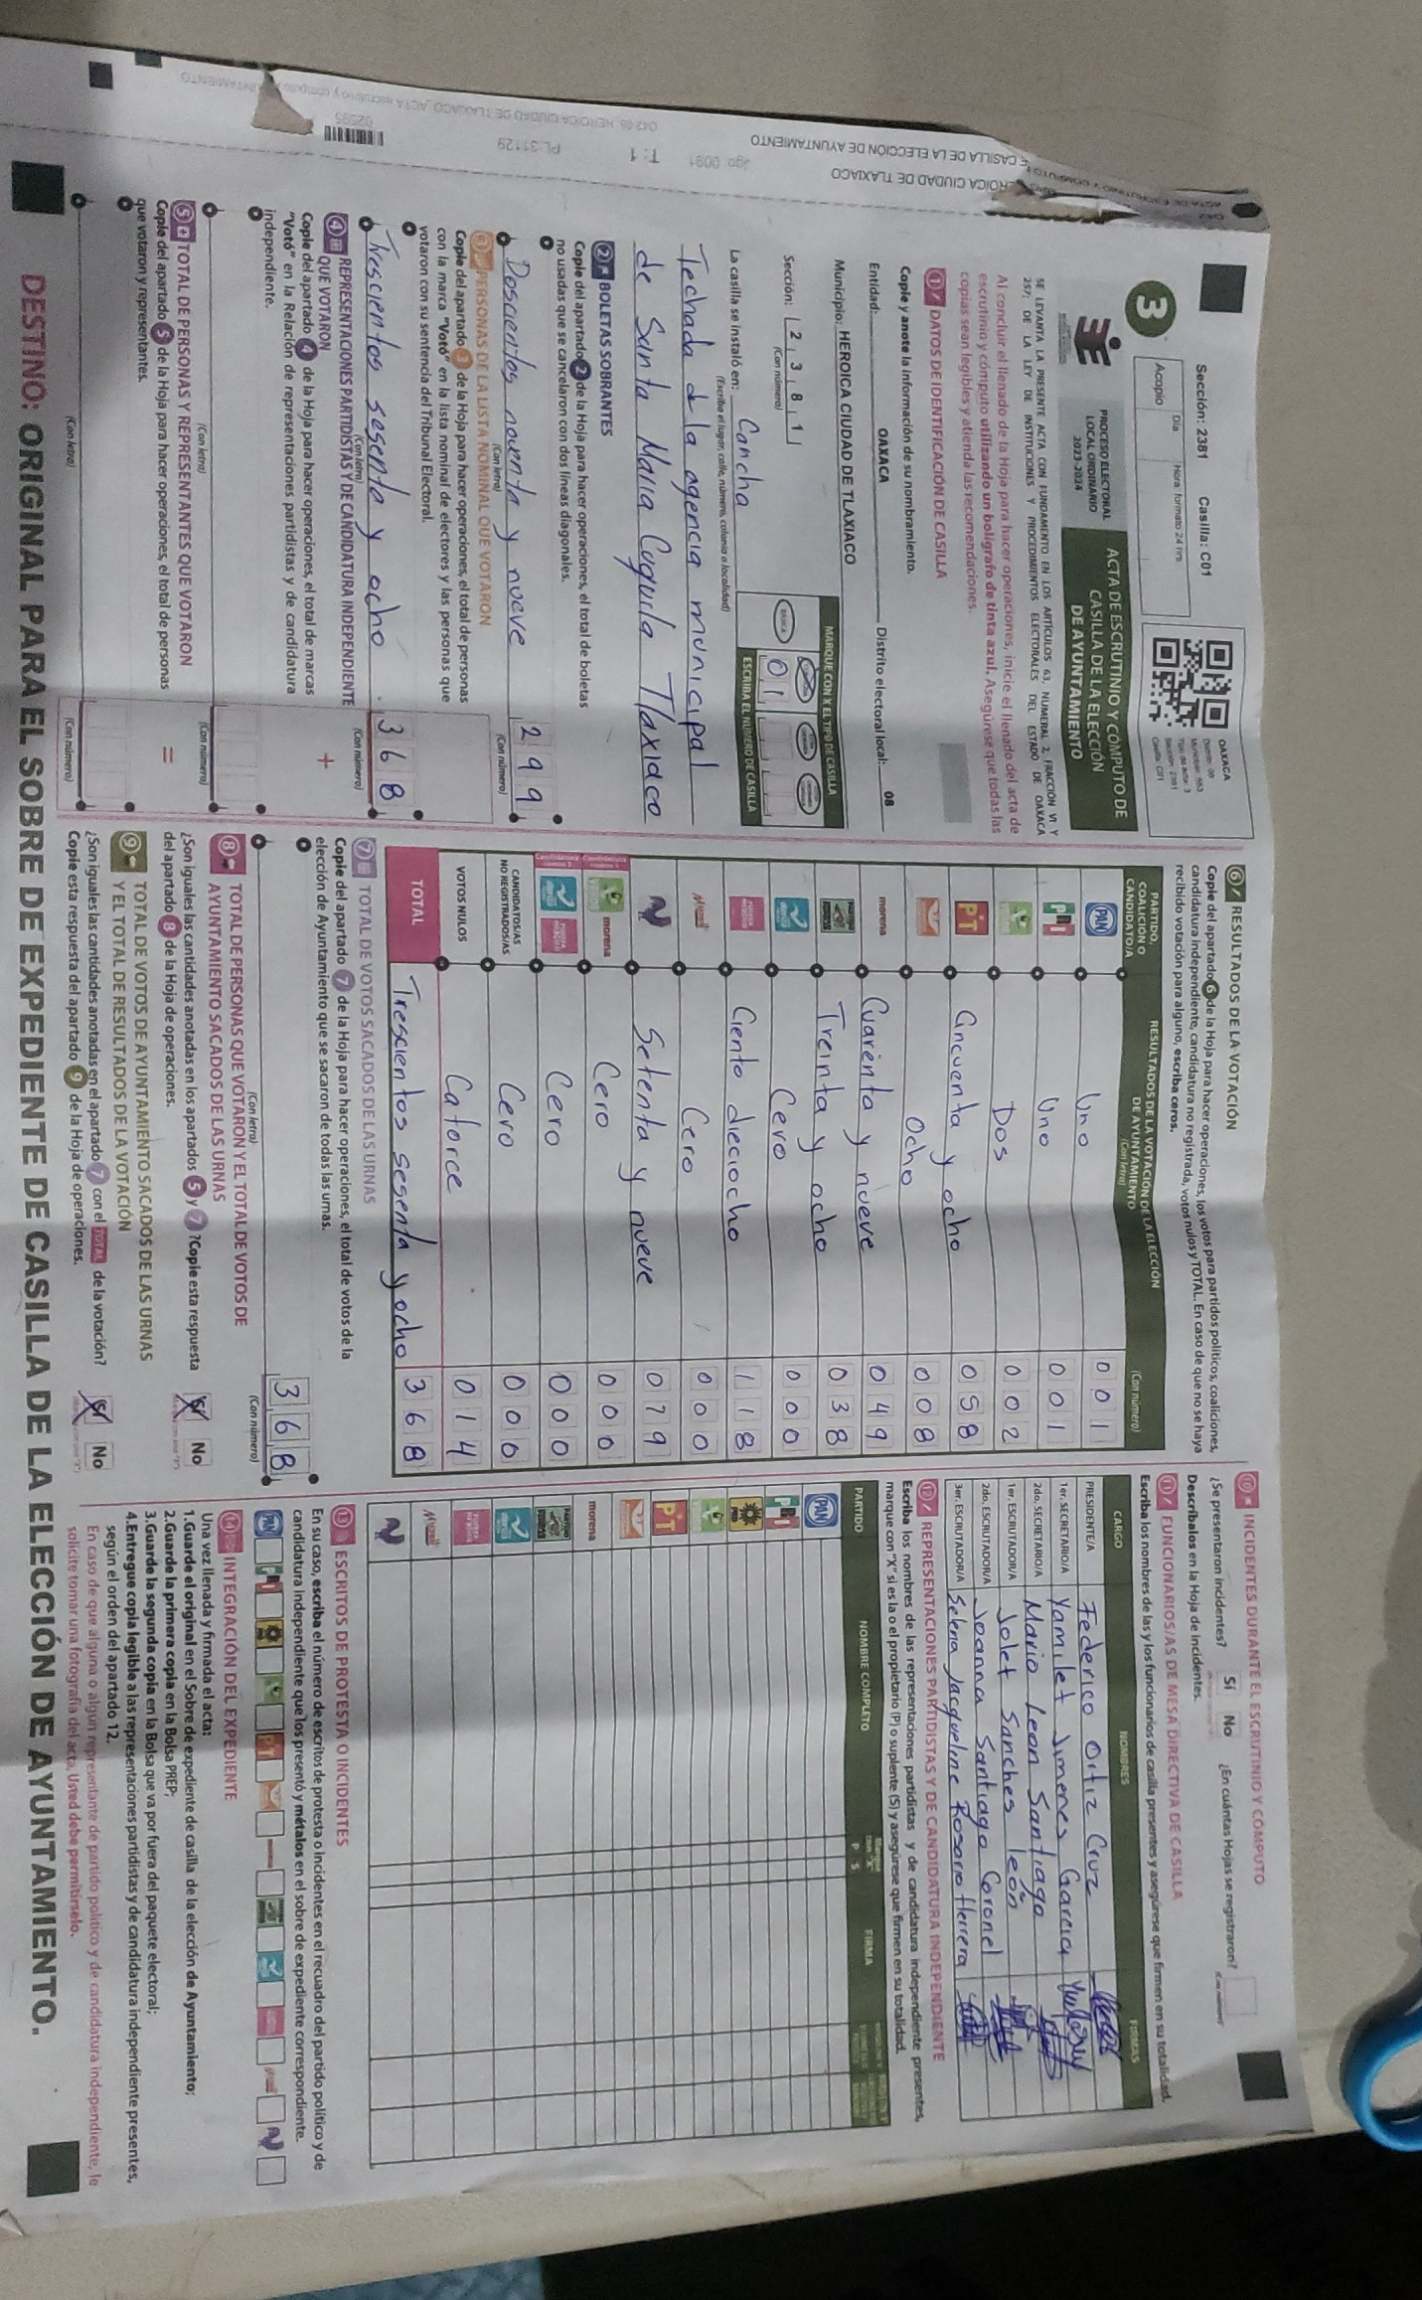 Sección: 2381 Casilla: C01
Día
Hora: formato 24 hrs
Acopio
OAXACA
3
PROCESO ELECTORAL
LOCAL ORDINARIO
2023-2024
ACTA DE ESCRUTINIO Y CÓMPUTO DE
CASILLA DE LA ELECCIÓN
DE AYUNTAMIENTO
SE LEVANTA LA PRESENTE ACTA CON FUNDAMENTO EN LOS ARTÍCULOS 63, NUMERAL 2, FRACCIÓN VI Y
257; DE LA LEY DE INSTITUCIONES Y PROCEDIMIENTOS ELECTORALES DEL ESTADO DE OAXACA
Al concluir el llenado de la Hoja para hacer operaciones, inicie el llenado del acta de
escrutinio y cómputo utilizando un bolígrafo de tinta azul. Asegúrese que todas las
copias sean legibles y atienda las recomendaciones.
1 DATOS DE IDENTIFICACIÓN DE CASILLA
Copie y anote la información de su nombramiento.
Entidad: OAXACA Distrito electoral local: 08
Municipio: HEROICA CIUDAD DE TLAXIACO
Sección: 2 3 8 1
(Con número)
MARQUE CON X EL TIPO DE CASILLA
0 1
ESCRIBA EL NÚMERO DE CASILLA
La casilla se instaló en: Cancha
(Escriba el lugar, calle, número, colonia o localidad)
Techada d la agencia municipal
de Santa Maria Cuquila Tlaxiaco
2 BOLETAS SOBRANTES
Copie del apartado 2 de la Hoja para hacer operaciones, el total de boletas
no usadas que se cancelaron con dos líneas diagonales.
Doscientos noventa y nueve 2 9 9
(Con letra) (Con número)
3 PERSONAS DE LA LISTA NOMINAL QUE VOTARON
Copie del apartado 3 de la Hoja para hacer operaciones, el total de personas
con la marca "Votó" en la lista nominal de electores y las personas que
votaron con su sentencia del Tribunal Electoral.
Trescientos sesenta y ocho 3 6 8
(Con letra) (Con número)
4 REPRESENTACIONES PARTIDISTAS Y DE CANDIDATURA INDEPENDIENTE
QUE VOTARON +
Copie del apartado 4 de la Hoja para hacer operaciones, el total de marcas
"Votó" en la Relación de representaciones partidistas y de candidatura
independiente.
(Con letra) (Con número)
5 TOTAL DE PERSONAS Y REPRESENTANTES QUE VOTARON
Copie del apartado 5 de la Hoja para hacer operaciones, el total de personas =
que votaron y representantes.
(Con letra) (Con número)
6 RESULTADOS DE LA VOTACIÓN
Copie del apartado 6 de la Hoja para hacer operaciones, los votos para partidos políticos, coaliciones,
candidatura independiente, candidatura no registrada, votos nulos y TOTAL. En caso de que no se haya
recibido votación para alguno, escriba ceros.
PARTIDO,
COALICIÓN O
CANDIDATO/A
RESULTADOS DE LA VOTACIÓN DE LA ELECCIÓN
DE AYUNTAMIENTO
(Con letra)
(Con número)
PAN Uno 0 0 1
PRI Uno 0 0 1
Dos 0 0 2
PT Cincuenta y ocho 0 5 8
Ocho 0 0 8
morena Cuarenta y nueve 0 4 9
Treinta y ocho 0 3 8
Cero 0 0 0
Ciento dieciocho 1 1 8
Cero 0 0 0
Setenta y nueve 0 7 9
morena Cero 0 0 0
Cero 0 0 0
CANDIDATOS/AS
NO REGISTRADOS/AS Cero 0 0 0
VOTOS NULOS Catorce 0 1 4
TOTAL Trescientos sesenta y ocho 3 6 8
7 TOTAL DE VOTOS SACADOS DE LAS URNAS
Copie del apartado 7 de la Hoja para hacer operaciones, el total de votos de la
elección de Ayuntamiento que se sacaron de todas las urnas.
3 6 8
(Con letra) (Con número)
8 TOTAL DE PERSONAS QUE VOTARON Y EL TOTAL DE VOTOS DE
AYUNTAMIENTO SACADOS DE LAS URNAS
¿Son iguales las cantidades anotadas en los apartados 5 y 7 ? Copie esta respuesta
del apartado 8 de la Hoja de operaciones.
Sí No
9 TOTAL DE VOTOS DE AYUNTAMIENTO SACADOS DE LAS URNAS
Y EL TOTAL DE RESULTADOS DE LA VOTACIÓN
¿Son iguales las cantidades anotadas en el apartado 7 con el TOTAL de la votación?
Copie esta respuesta del apartado 9 de la Hoja de operaciones.
Sí No
10 INCIDENTES DURANTE EL ESCRUTINIO Y CÓMPUTO
¿Se presentaron incidentes? Sí No ¿En cuántas Hojas se registraron?
(Con número)
Descríbalos en la Hoja de incidentes.
11 FUNCIONARIOS/AS DE MESA DIRECTIVA DE CASILLA
Escriba los nombres de las y los funcionarios de casilla presentes y asegúrese que firmen en su totalidad.
CARGO NOMBRES FIRMAS
PRESIDENTE/A Federico Ortiz Cruz
1er. SECRETARIO/A Yamilet Jimenes Garcia
2do. SECRETARIO/A Mario Leon Santiago
1er. ESCRUTADOR/A Jolet Sanches león
2do. ESCRUTADOR/A Joanna Santiago Coronel
3er. ESCRUTADOR/A Selena Jacqueline Rosario Herrera
12 REPRESENTACIONES PARTIDISTAS Y DE CANDIDATURA INDEPENDIENTE
Escriba los nombres de las representaciones partidistas y de candidatura independiente presentes,
marque con "X" si es la o el propietario (P) o suplente (S) y asegúrese que firmen en su totalidad.
PARTIDO NOMBRE COMPLETO P S FIRMA
PAN
PRI
PRD
PT
morena
13 ESCRITOS DE PROTESTA O INCIDENTES
En su caso, escriba el número de escritos de protesta o incidentes en el recuadro del partido político y de
candidatura independiente que los presentó y métalos en el sobre de expediente correspondiente.
14 INTEGRACIÓN DEL EXPEDIENTE
Una vez llenada y firmada el acta:
1.Guarde el original en el Sobre de expediente de casilla de la elección de Ayuntamiento;
2.Guarde la primera copia en la Bolsa PREP;
3.Guarde la segunda copia en la Bolsa que va por fuera del paquete electoral;
4.Entregue copia legible a las representaciones partidistas y de candidatura independiente presentes,
según el orden del apartado 12.
En caso de que alguna o algún representante de partido político y de candidatura independiente, le
solicite tomar una fotografía del acta, Usted debe permitírselo.
DESTINO: ORIGINAL PARA EL SOBRE DE EXPEDIENTE DE CASILLA DE LA ELECCIÓN DE AYUNTAMIENTO.
E CASILLA DE LA ELECCIÓN DE AYUNTAMIENTO
T: 1
PL: 31129
02595